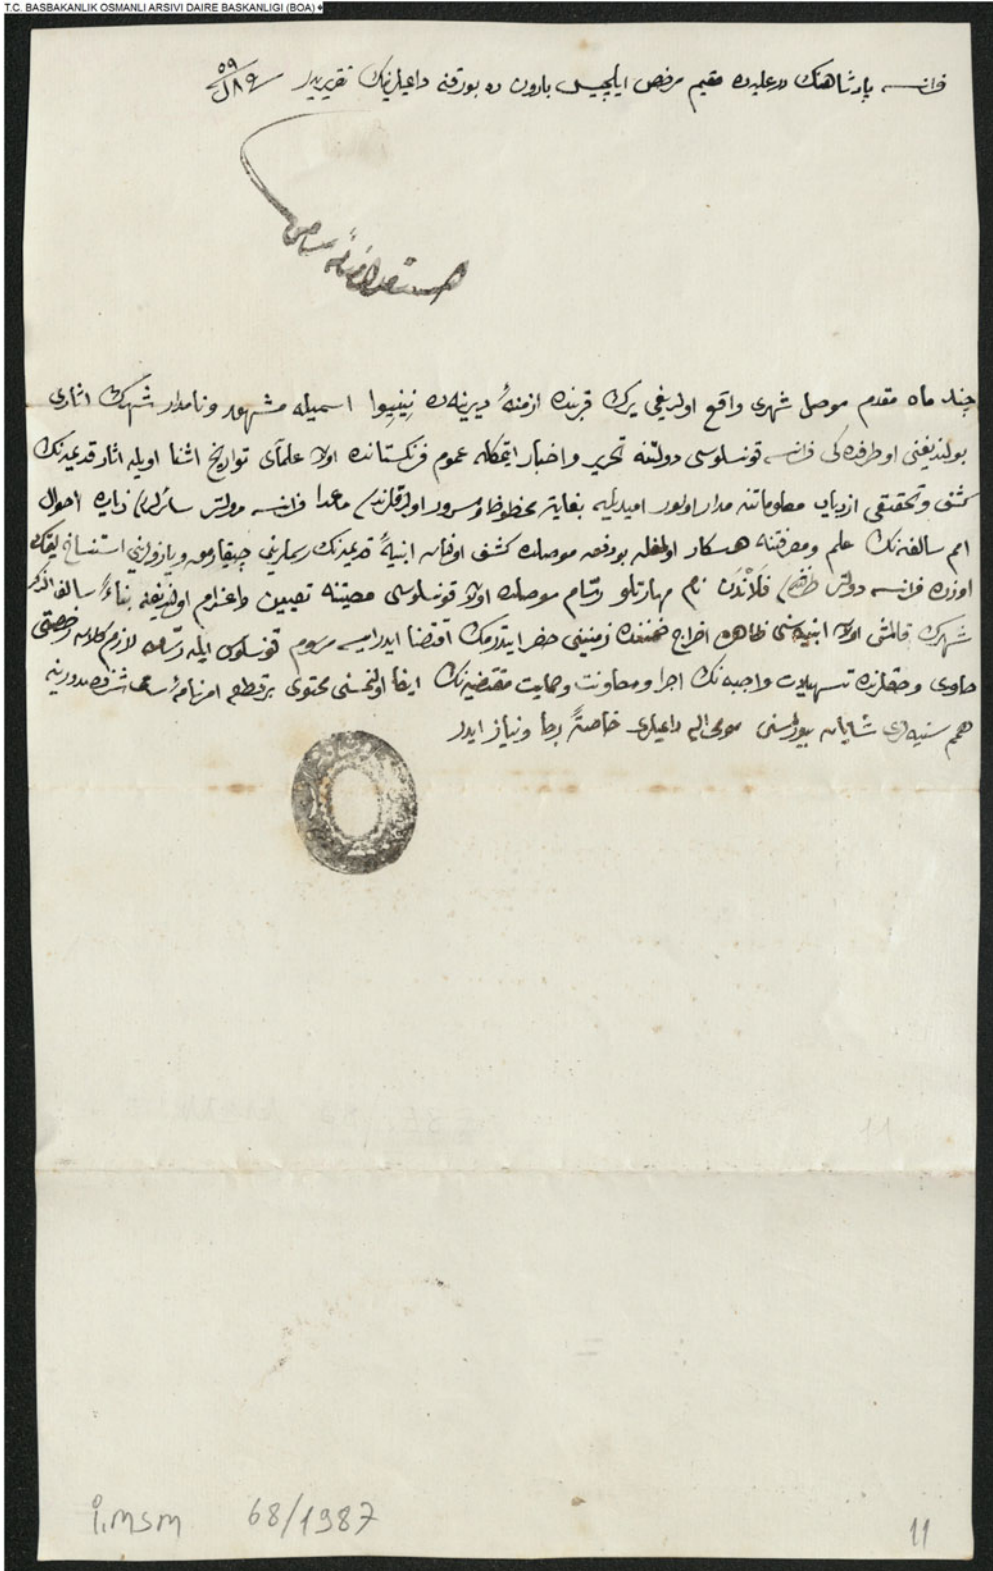 T.C. BASBAKANLIK OSMANLI ARSIVI DAIRE BASKANLIGI (BOA)
فرانسه پادشاهنك درعليه‌ده مقيم مرخص ايلچيسى بارون ده بورقنه داعيلرينك تقريريدر
چند ماه مقدم موصل شهرى واقع اولديغى يرك قربنده ازمنهٔ ديرينه‌ده نينيوا اسميله مشهور ونامدار شهرك اثارى
بولنديغنى اوطرفده‌كى فرانسه قونسلوسى دولتنه تحرير واخبار ايتمكله عموم فرنكستانده اولان علماى تواريخ اشنا اويله اثار قديمه‌نك
كشف وتحقيقى ازدياد معلوماتنه مدار اولور اميديله بغايت محظوظ ومسرور اولدقلرندن ماعدا فرانسه دولتى سائرلردن زياده احوال
امم سالفه‌نك علم ومعرفتنه هسكار اولمغله بودفعه موصلده كشف اولنان ابنيهٔ قديمه‌نك رسملرينى چيقارمق ويازولرينى استنساخ ايتمك
اوزره فرانسه دولتى طرفندن فلاندن نام مهارتلو رسام موصلده اولان قونسلوسى معيتنه تعيين واعزام اولنديغنه بناءً سالف الذكر
شهرك قالمش اولان ابنيه‌سنى ظاهره اخراج ضمننده زمينى حفر ايتدرمك اقتضا ايدر ايسه مرسوم قونسلوس ايله رسامه لازم كلان رخصتى
حاوى وحقلرنده تسهيلات واجبه‌نك اجرا ومعاونت وحمايت مقتضيه‌نك ايفا اولنمسنى محتوى برقطعه امرنامهٔ سامى شرفصدورينه
همم سنيه‌لرى شايان بيورلمسنى مومى اليه داعيلرى خاصةً رجا ونياز ايدر
i.msm 68/1987
11